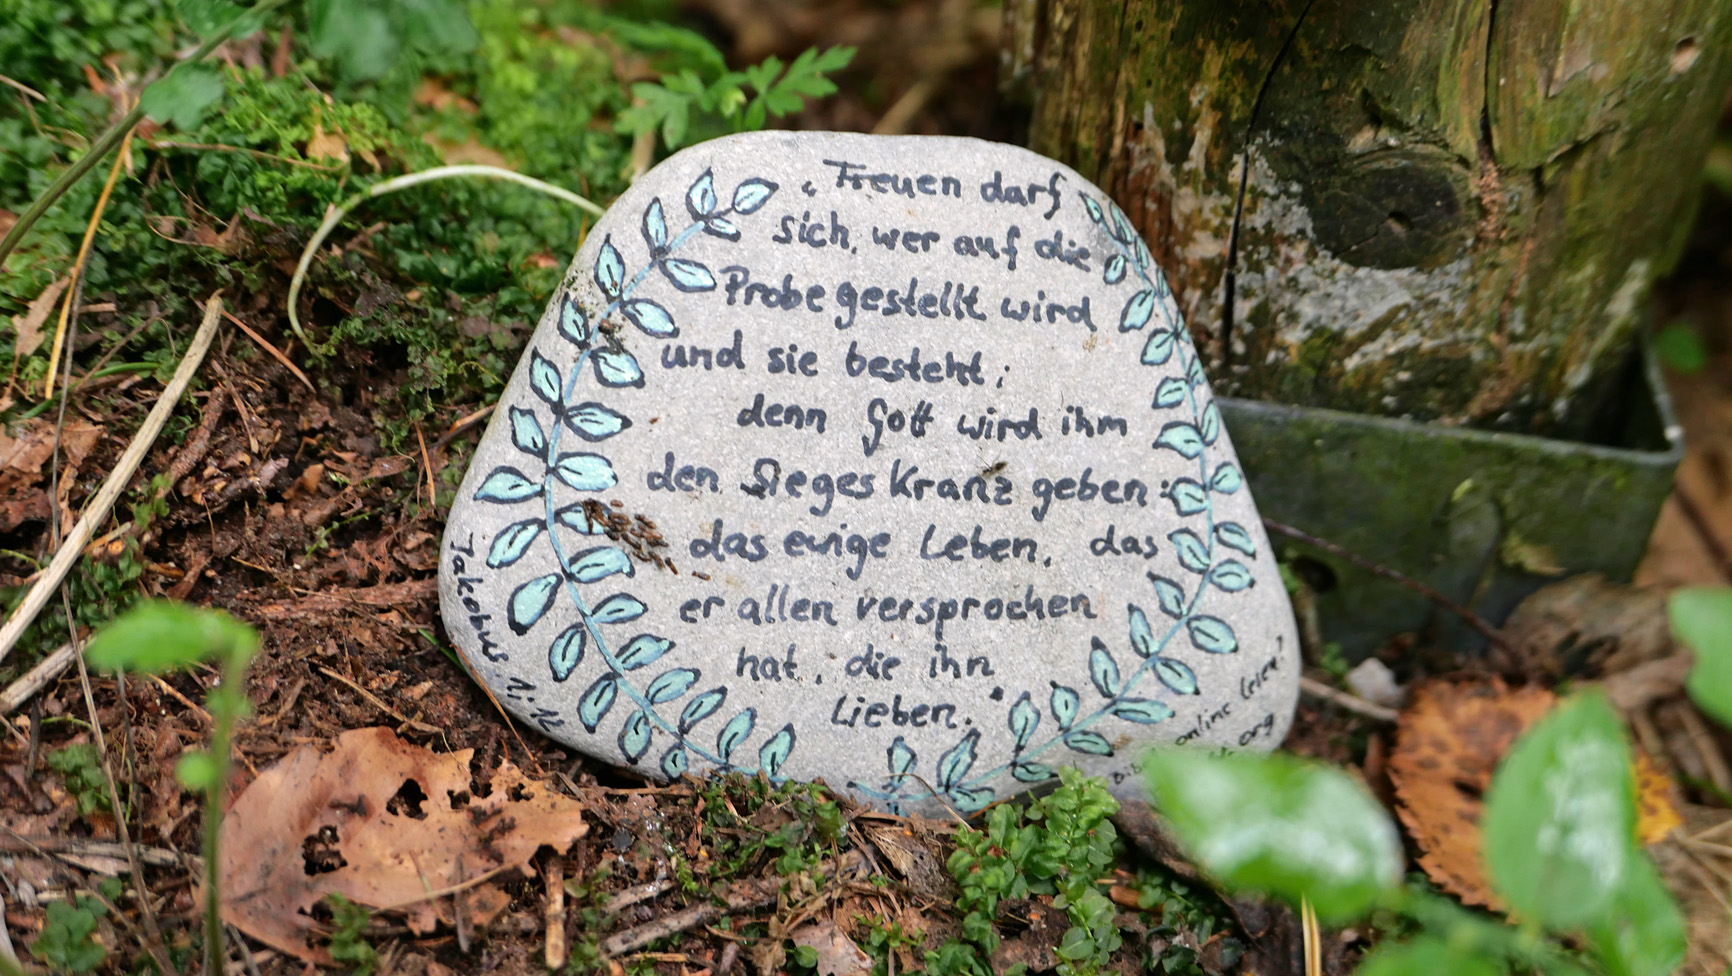 „Freuen darf
sich, wer auf die
Probe gestellt wird
und sie besteht;
denn Gott wird ihm
den Sieges Kranz geben:
das ewige Leben, das
er allen versprochen
hat, die ihn
Lieben."
Jakobus 1, 12
online lesen?
org